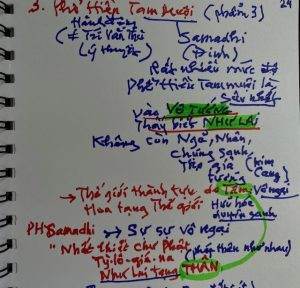 3. Phổ Hiền Tam muội (phẩm 3) 24
Hành động
(≠ Trí Văn Thù Samadhi
Lý thuyết) (Định)
Rất nhiều mức độ
Phổ Hiền Tam muội là
sâu nhất
vào Vô Tướng
Thấy biết NHƯ LAI
Không còn Ngã, Nhân,
Chúng sanh,
Thọ giả (Kim
tướng Cang)
→ Thế giới thành tựu do Tâm vô ngại
Hoa tạng Thế giới
duyên sanh
PH Samadhi → Sự sự vô ngại
"Nhất thiết Chư Phật
Tỳ-lô-giá-na
Như Lai tạng THÂN